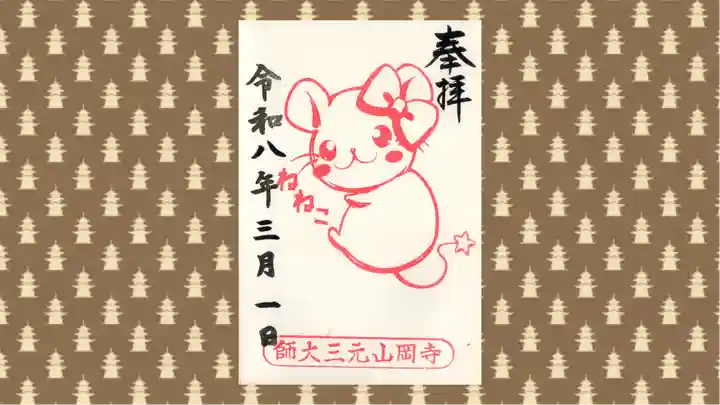 奉拝
ねねこ
令和八年三月一日
師大三元山岡寺